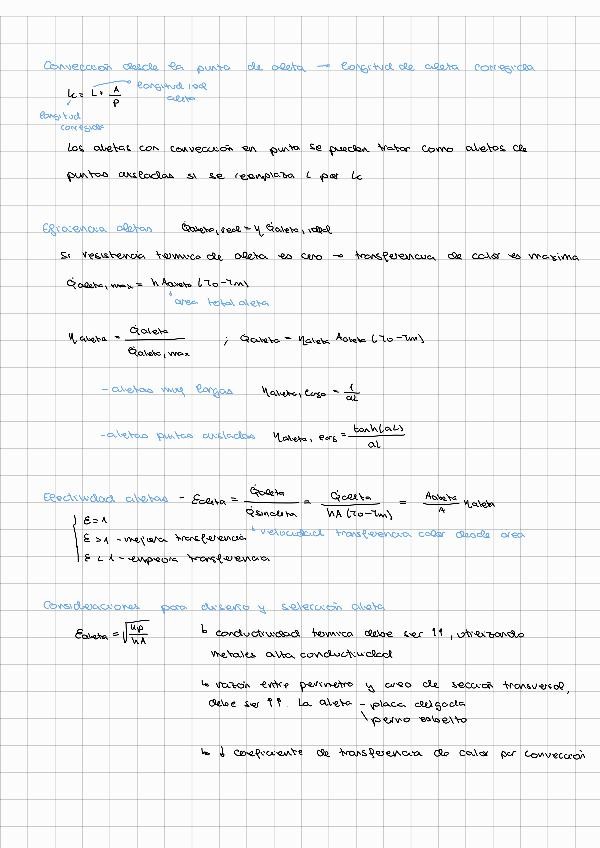 Convección desde la punta de aleta → longitud de aleta corregida
Lc = L + A/P
longitud real aleta
longitud corregida
Las aletas con convección en punta se pueden tratar como aletas de
puntas aisladas si se reemplaza L por Lc
Eficiencia aletas Q̇aleta, real = η Q̇aleta, ideal
Si resistencia termica de aleta es cero → transferencia de calor es maxima
Q̇aleta, max = h Aaleta (T0 - Tm)
area total aleta
ηaleta = Q̇aleta / Q̇aleta, max ; Q̇aleta = ηaleta Aaleta (T0 - Tm)
- aletas muy largas ηaleta, larga = 1/aL
- aletas puntas aisladas ηaleta, = tanh(aL)/aL
Efectividad aletas - εaleta = Q̇aleta / Q̇sinaleta = Q̇aleta / hA (T0 - Tm) = Aaleta/A ηaleta
ε = 1
ε > 1 - mejora transferencia
↳ velocidad transferencia calor desde area
ε < 1 - empeora transferencia
Consideraciones para diseño y selección aleta
εaleta = √(kp/hA)
↳ conductividad termica debe ser ↑↑, utilizando
metales alta conductividad
↳ razón entre perimetro y area de sección transversal,
debe ser ↑↑. La aleta - placa delgada
\ perno esbelto
↳ ↓ coeficiente de transferencia de calor por convección